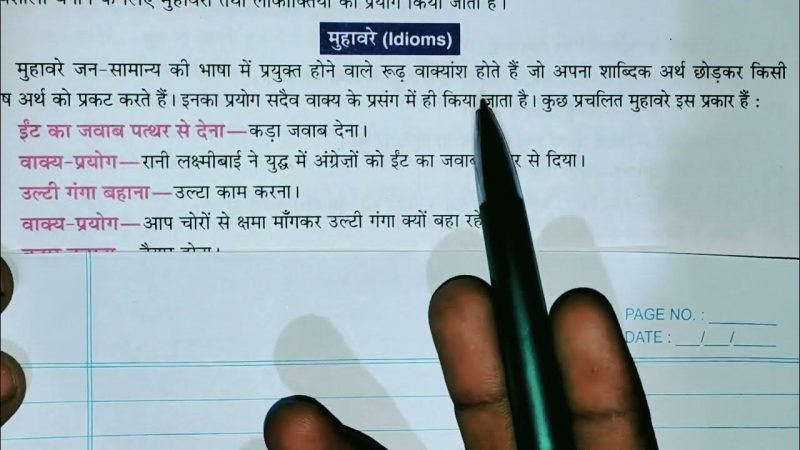 के लिए मुहावरों तथा लोकोक्तियों का प्रयोग किया जाता है।
मुहावरे (Idioms)
मुहावरे जन-सामान्य की भाषा में प्रयुक्त होने वाले रूढ़ वाक्यांश होते हैं जो अपना शाब्दिक अर्थ छोड़कर किसी
ष अर्थ को प्रकट करते हैं। इनका प्रयोग सदैव वाक्य के प्रसंग में ही किया जाता है। कुछ प्रचलित मुहावरे इस प्रकार हैं :
ईंट का जवाब पत्थर से देना—कड़ा जवाब देना।
वाक्य-प्रयोग—रानी लक्ष्मीबाई ने युद्ध में अंग्रेज़ों को ईंट का जवाब र से दिया।
उल्टी गंगा बहाना—उल्टा काम करना।
वाक्य-प्रयोग—आप चोरों से क्षमा माँगकर उल्टी गंगा क्यों बहा रहे
PAGE NO. : ______
DATE : __/__/____